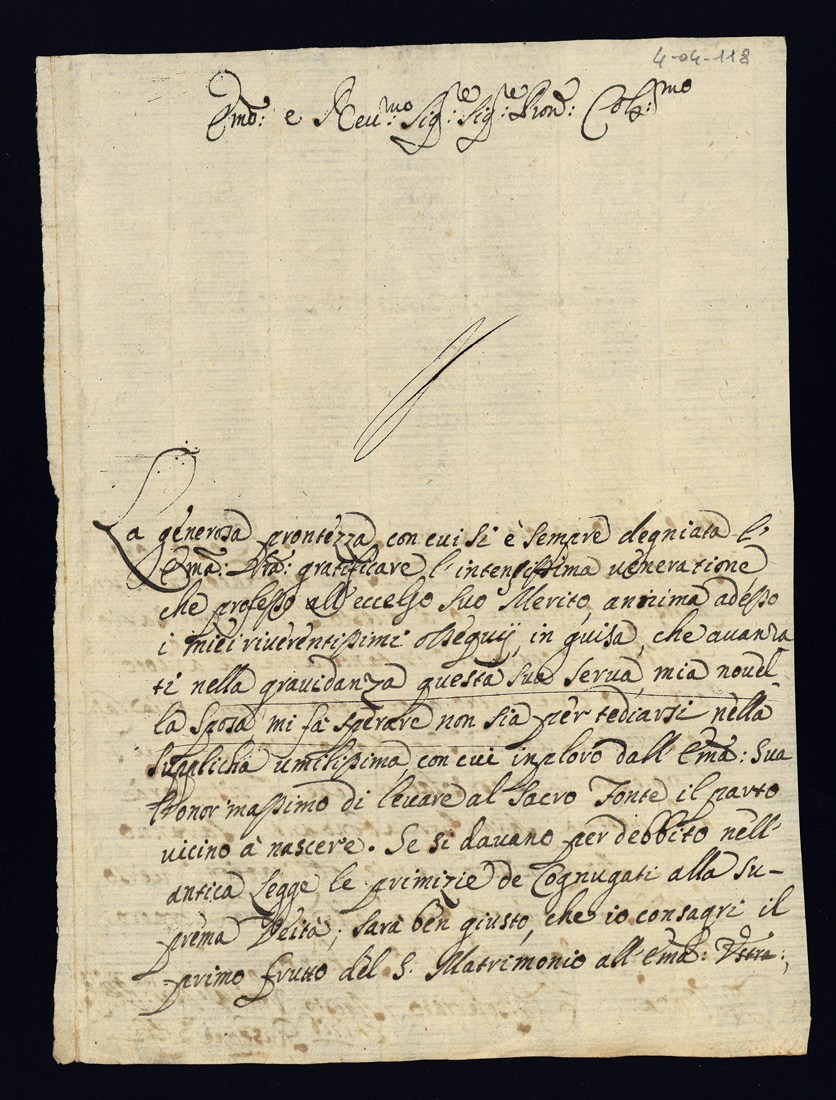 4-04-118
Emo: e Reu:mo Sig:re Sig:re Pron: Col:mo
La generosa prontezza con cui si è sempre degniata l'
Ema: Vra: gratificare l'intensissima ueneratione
che professo all'eccelso suo Merito, annima adesso
i miei riuerentissimi ossequij, in guisa, che auanza
ti nella grauidanza questa sua serua, mia nouel
la Sposa, mi fà sperare non sia per tediarsi nella
supplicha umilissima, con cui inploro dall'Ema: Sua
l'honor massimo di leuare al Sacro Fonte il parto
uicino à nascere. Se si dauano per debbito nell'
antica Legge le primizie de Cognugati alla Su-
prema Deità; sarà ben giusto, che io consagri il
primo frutto del S. Matrimonio all'Ema: Vstra:,